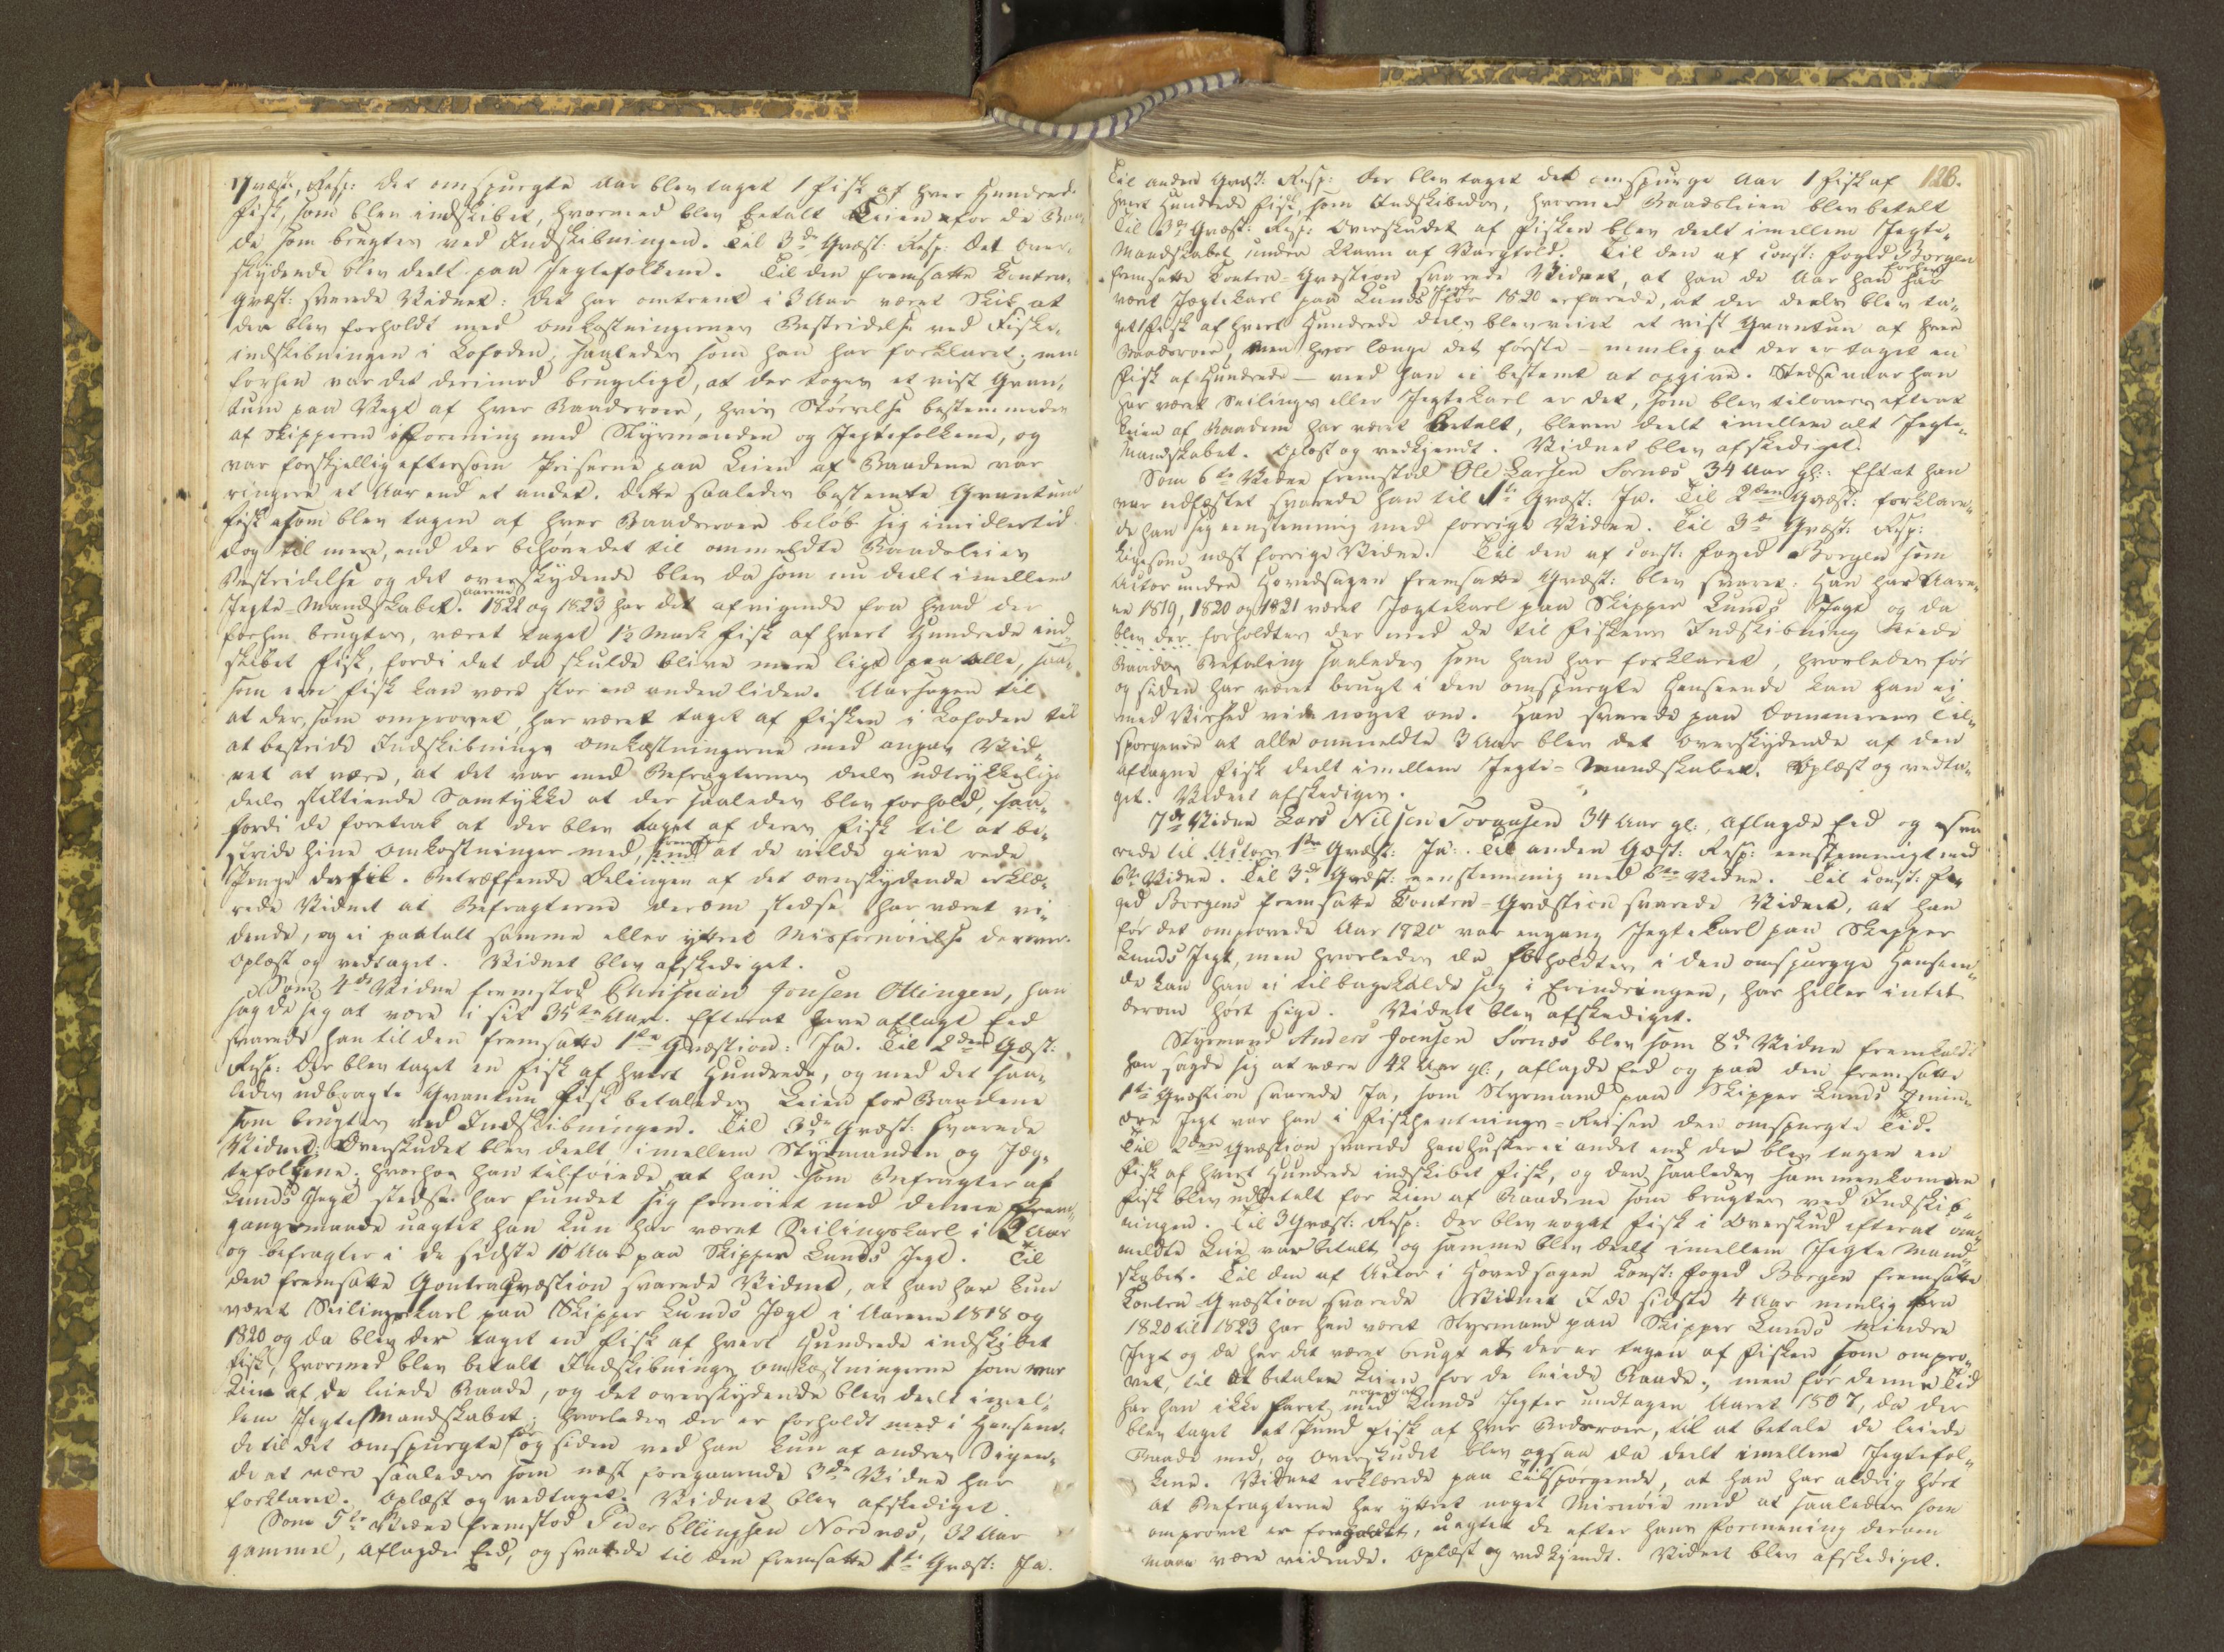 Qvæst:, Resp: det omspurgte Aar blev taget 1 Fisk af hver Hundrede
Fisk, som blev indskibet, hvormed blev betalt Leien for de Baa-
de som brugtes ved Indskibningen. Til 3de Qvæst: Resp: Det over-
skydende blev deelt paa Jegtefolkene. Til den fremsatte Contra-
Qvæst: svarede Vidnet: Det har omtrent i 3 Aar været Skik at
der blev forholdt med Omkostningernes Bestridelse ved Fiske-
indskibningen i Lofoden, saaledes som han har forklaret; men
forhen var det derimod brugeligt, at der toges et vist Qvan-
tum paa Vegt af hver Baadsroer, hvis Størrelse bestemmedes
af Skipperen i Forening med Styrmanden og Jegtefolkene, og
var forskjellig eftersom Priserne paa Leien af Baadene var
ringere et Aar end et andet. Dette saaledes bestemte Qvantum
Fisk som blev tagen af hver Baadsroer beløb sig imidlertid
dog til mere, end der behøvedes til ommeldte Baadeleies
Bestridelse og det overskydende blev da som nu deelt imellem
Jegte-Mandskabet. Aarene 1822 og 1823 har det afvigende fra hvad der
forhen brugtes, været taget 1½ Mark Fisk af hvert Hundrede ind-
skibet Fisk, fordi det da skulde blive mere ligt paa alle, saa-
som een Fisk kan være stor en anden liden. Aarsagen til
at der, som omprovet, har været taget af Fisken i Lofoden til
at bestride Indskibnings Omkostningerne med angav Vid-
net at være, at det var med Befragternes deels udtrykkelige
deels stiltiende Samtykke at der saaledes blev forhold,
fordi de foretrak at der blev taget af deres Fisk til at be-
stride hine Omkostninger med, fremfor at de vilde give rede
Penge dertil. Betræffende Delingen af det overskydende erklæ-
rede Vidnet at Befragterne derom stedse har været vi-
dende, og ei paatalt samme eller yttret Misfornøielse derover.
Oplæst og vedtaget. Vidnet blev afskediget.
Som 4de Vidne fremstod Christian Jensen Ottingen, han
sagde sig at være i sit 35te Aar. Efterat have aflagt Eed
svarede han til den fremsatte 1ste Qvæstion: Ja. Til 2den Qvæst:
Resp: Der blev taget en Fisk af hvert Hundrede, og med det saa-
ledes udbragte Qvantum Fisk betaltes Leien for Baadene
som brugtes ved Indskibningen. Til 3die Qvæst: svarede
Vidnet: Overskudet blev deelt imellem Styrmanden og Jæg-
tefolkene; hvorhos han tilføiede, at han som Befragter af
Lunds Jegt stedse har fundet sig fornøiet med denne Frem-
gangsmaade uagtet han kun har været Seilingskarl i 2 Aar
og Befragter i de sidste 10 Aar paa Skipper Lunds Jegt. Til
den fremsatte Contraqvæstion svarede Vidnet, at han har kun
været Seilingskarl paa Skipper Lunds Jægt i Aarene 1818 og
1820 og da blev der taget en Fisk af hvert Hundrede indskibet
Fisk, hvormed blev betalt Indskibnings Omkostningerne som var
Leie af de leiede Baade, og det overskydende blev deelt imel-
lem Jegte Mandskabet; hvorledes der er forholdt med i Henseen-
de til det omspurgte før og siden ved han kun af andres Sigen-
de at være saaledes som næst foregaaende 3de Vidne har
forklaret. Oplæst og vedtaget. Vidnet blev afskediget.
Som 5te Vidne fremstod Peder Ellingsen Nordnæs, 32 Aar
gammel, aflagde Eed, og svarede til den fremsatte 1ste Qvæst: Ja.
128.
Til anden Qvæst: Resp: Der blev taget det omspurgte Aar 1 Fisk af
hvert Hundrede Fisk, som Indskibedes, hvormed Baadsleien blev betalt
Til 3de Qvæst: Resp: Overskudet af Fisken blev deelt imellem Jegte-
Mandskabet under Navn af Vargfold. Til den af const: Foged Borgen
fremsatte Contra-Qvæstion svarede Vidnet, at han de Aar han har forhen
været Jægtekarl paa Lunds Jegt før 1820 erfarede, at der deels blev ta-
get 1 Fisk af hvert Hundrede deels blev reist et vist Qvantum af hver
Baadsroer, men hvor længe det første – nemlig at der er taget en
Fisk af Hundrede – veed han ei bestemt at opgive. Stedse naar han
har været Seilings eller Jegtekarl er det, som blev tilovers efterat
Leien af Baadene har været betalt, bleven deelt imellem alt Jegte-
Mandskabet. Oplæst og vedkjendt. Vidnet blev afskediget.
Som 6te Vidne fremstod Ole Larsen Sornæs 34 Aar gl: Eft at han
var edfæstet svarede han til 1ste Qvæst: Ja. Til 2den Qvæst: forklare-
de han sig eenstemmig med forrige Vidne. Til 3de Qvæst: Resp:
Ligesom næst forrige Vidne. Til den af const: Foged Borgen som
Actor under Hovedsagen fremsatte Qvæst: blev svaret: Han har Aare-
ne 1819, 1820 og 1821 været Jægtekarl paa Skipper Lunds Jægt og da
blev der forholdtes der med de til Fiskens Indskibning leiede
Baades Betaling saaledes som han har forklaret, hvorledes før
og siden har været brugt i den omspurgte Henseende kan han ei
med Vished vide noget om. Han svarede paa Dommerens Til-
spørgende at alle ommeldte 3 Aar blev det Overskydende af den
aftagne Fisk deelt imellem Jegte-Mandskabet. Oplæst og vedta-
get. Vidnet afskediges.
7de Vidne Lars Nilsen Tovaasen 34 Aar gl:, aflagde Eed og sva-
rede til Actors 1ste Qvæst: Ja. Til anden Qvæst: Resp: eenstemmigt med
6te Vidne. Til 3de Qvæst: eenstemmig med 6te Vidne. Til const: Fo-
ged Borgens fremsatte Contra-Qvæstion svarede Vidnet, at han
før det omprovede Aar 1820 var engang Jegtekarl paa Skipper
Lunds Jegt, men hvorledes da forholdtes i den omspurgte Henseen-
de kan han ei tilbagekalde sig i Erindringen, har heller intet
derom hørt sige. Vidnet blev afskediget.
Styrmand Anders Joensen Sornæs blev som 8de Vidne fremkaldt
han sagde sig at være 42 Aar gl:, aflagde Eed og paa den fremsatte
1ste Qvæstion svarede Ja, som Styrmand paa Skipper Lunds min-
dre Jegt var han i Fiskhentnings-Reisen den omspurgte Tid.
Til 2den Qvæstion svarede han husker ei andet end der blev tagen en
Fisk af hvert Hundrede indskibet Fisk, og den saaledes sammenkomne
Fisk blev udbetalt for Leie af Baadene som brugtes ved Indskib-
ningen. Til 3 Qvæst: Resp: der blev noget Fisk i Overskud efterat om-
meldte Leie var betalt, og samme blev deelt imellem Jegte Mand-
skabet. Til den af Actor i Hovedsagen Const: Foged Borgen fremsatte
Contra Qvæstion svarede Vidnet I de sidste 4 Aar nemlig fra
1820 til 1823 har han været Styrmand paa Skipper Lunds mindre
Jegt og da har det været brugt at der er tagen af Fisken som ompro-
vet, til at betale Leien for de leiede Baade, men før denne Tid
har han ikke faret med nogen af Lunds Jegter undtagen Aaret 1807, da der
blev taget et Pund Fisk af hver Bodsroer, til at betale de leiede
Baade med, og Overskudet blev ogsaa da deelt imellem Jegtefol-
kene. Vidnet erklærede paa Tilspørgende, at han har aldrig hørt
at Befragterne har yttret noget Misnøie med at saaledes som
omprovet er forholdt, uagtet de efter hans Formening derom
maae være vidende. Oplæst og vedkjendt. Vidnet blev afskediget.